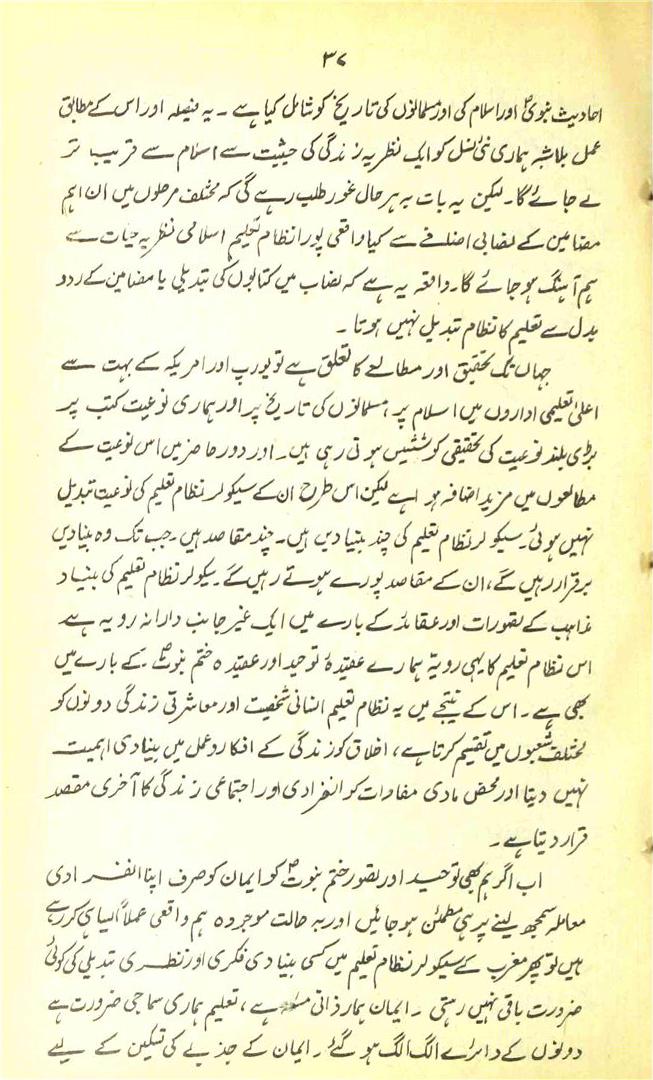 ۳۷
احادیث نبویؐ اور اسلام کی اور مسلمانوں کی تاریخ کو شامل کیا ہے۔ یہ فیصلہ اور اس کے مطابق
عمل بلاشبہ ہماری نئی نسل کو ایک نظریہ زندگی کی حیثیت سے اسلام سے قریب تر
لے جائے گا۔ لیکن یہ بات بہ ہر حال غور طلب رہے گی کہ مختلف مرحلوں میں ان اہم
مضامین کے نصابی اضافے سے کیا واقعی پورا نظام تعلیم اسلامی نظریہ حیات سے
ہم آہنگ ہو جائے گا۔ واقعہ یہ ہے کہ نصاب میں کتابوں کی تبدیلی یا مضامین کے ردو
بدل سے تعلیم کا نظام تبدیل نہیں ہوتا۔
جہاں تک تحقیق اور مطالعے کا تعلق ہے تو یورپ اور امریکہ کے بہت سے
اعلیٰ تعلیمی اداروں میں اسلام پر، مسلمانوں کی تاریخ پر اور ہماری نوعیت کتب پر
بڑی بلند نوعیت کی تحقیقی کوششیں ہوتی رہی ہیں۔ اور دور حاضر میں اس نوعیت کے
مطالعوں میں مزید اضافہ ہوا ہے لیکن اس طرح ان کے سیکولر نظام تعلیم کی نوعیت تبدیل
نہیں ہوئی۔ سیکولر نظام تعلیم کی چند بنیادیں ہیں۔ چند مقاصد ہیں۔ جب تک وہ بنیادیں
برقرار رہیں گے، ان کے مقاصد پورے ہوتے رہیں گے۔ سیکولر نظام تعلیم کی بنیاد
مذاہب کے تصورات اور عقائد کے بارے میں ایک غیر جانب دارانہ رویہ ہے
اس نظام تعلیم کا یہی رویہ ہمارے عقیدۂ توحید اور عقیدہ ختم نبوتؐ کے بارے میں
بھی ہے۔ اس کے نتیجے میں یہ نظام تعلیم انسانی شخصیت اور معاشرتی زندگی دونوں کو
مختلف شعبوں میں تقسیم کرتا ہے، اخلاق کو زندگی کے افکار و عمل میں بنیادی اہمیت
نہیں دیتا اور محض مادی مفادات کو انفرادی اور اجتماعی زندگی کا آخری مقصد
قرار دیتا ہے۔
اب اگر ہم بھی توحید اور تصور ختم نبوتؐ کو ایمان کو صرف اپنا انفرادی
معاملہ سمجھ لینے پر ہی مطمئن ہو جائیں اور بہ حالت موجودہ ہم واقعی عملاً ایسا ہی کر رہے
ہیں تو پھر مغرب کے سیکولر نظام تعلیم میں کسی بنیادی فکری اور نظری تبدیلی کی کوئی
ضرورت باقی نہیں رہتی۔ ایمان ہمارا ذاتی مسئلہ ہے، تعلیم ہماری سماجی ضرورت ہے
دونوں کے دائرے الگ الگ ہو گئے۔ ایمان کے جذبے کی تسکین کے لیے